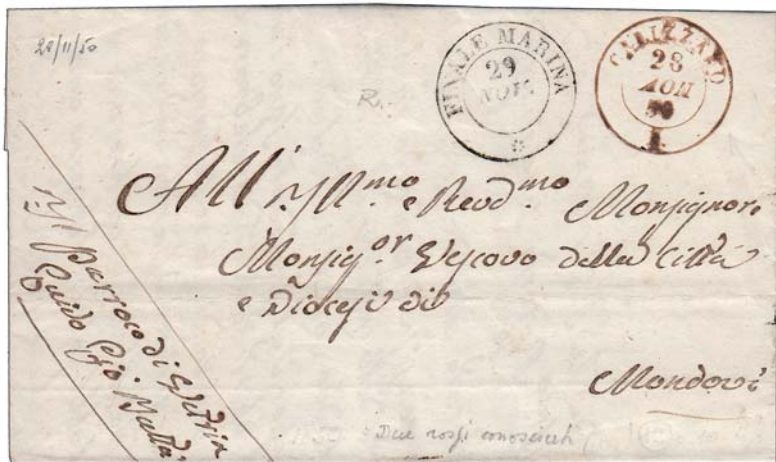 28/11/50
R.
FINALE MARINA
29
NOV.
CALIZZANO
28
NOV
50
All'Ill.mo e Revd.mo Monsignore
Monsig.or Vescovo della Città
e Diocesi di
Mondovì
Il Parroco di
Guido Gio Batta
Due rossi conosciuti